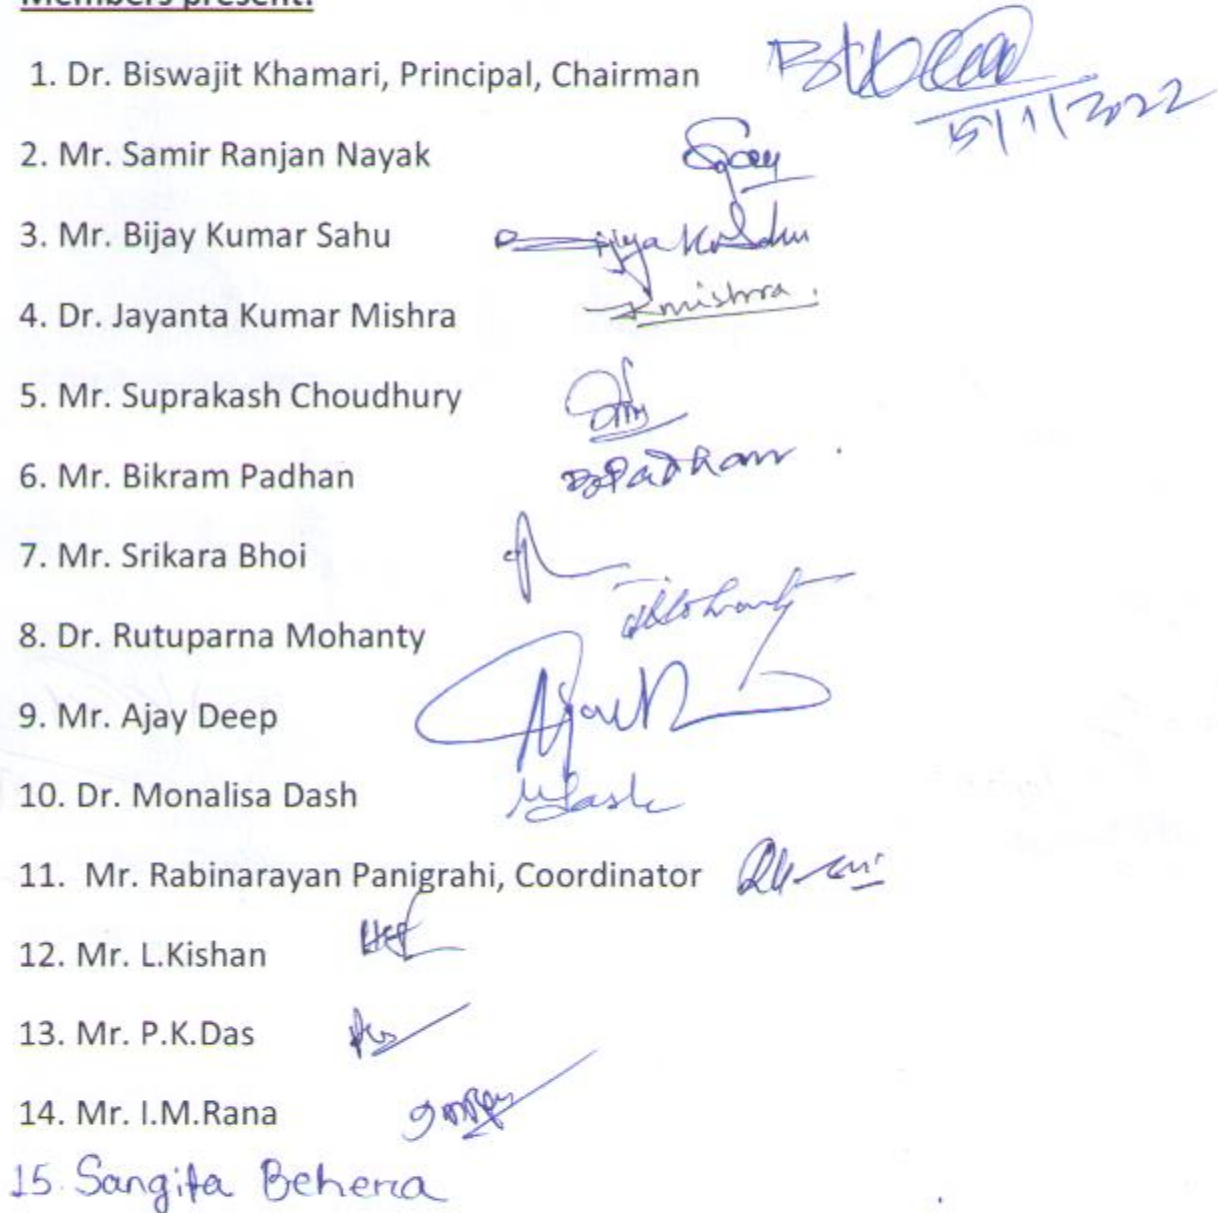 Members present:
1. Dr. Biswajit Khamari, Principal, Chairman
15/1/2022
2. Mr. Samir Ranjan Nayak
3. Mr. Bijay Kumar Sahu
4. Dr. Jayanta Kumar Mishra
mishra.
5. Mr. Suprakash Choudhury
6. Mr. Bikram Padhan
BPadhan
7. Mr. Srikara Bhoi
8. Dr. Rutuparna Mohanty
9. Mr. Ajay Deep
10. Dr. Monalisa Dash
11. Mr. Rabinarayan Panigrahi, Coordinator
12. Mr. L.Kishan
13. Mr. P.K.Das
14. Mr. I.M.Rana
15. Sangita Behera